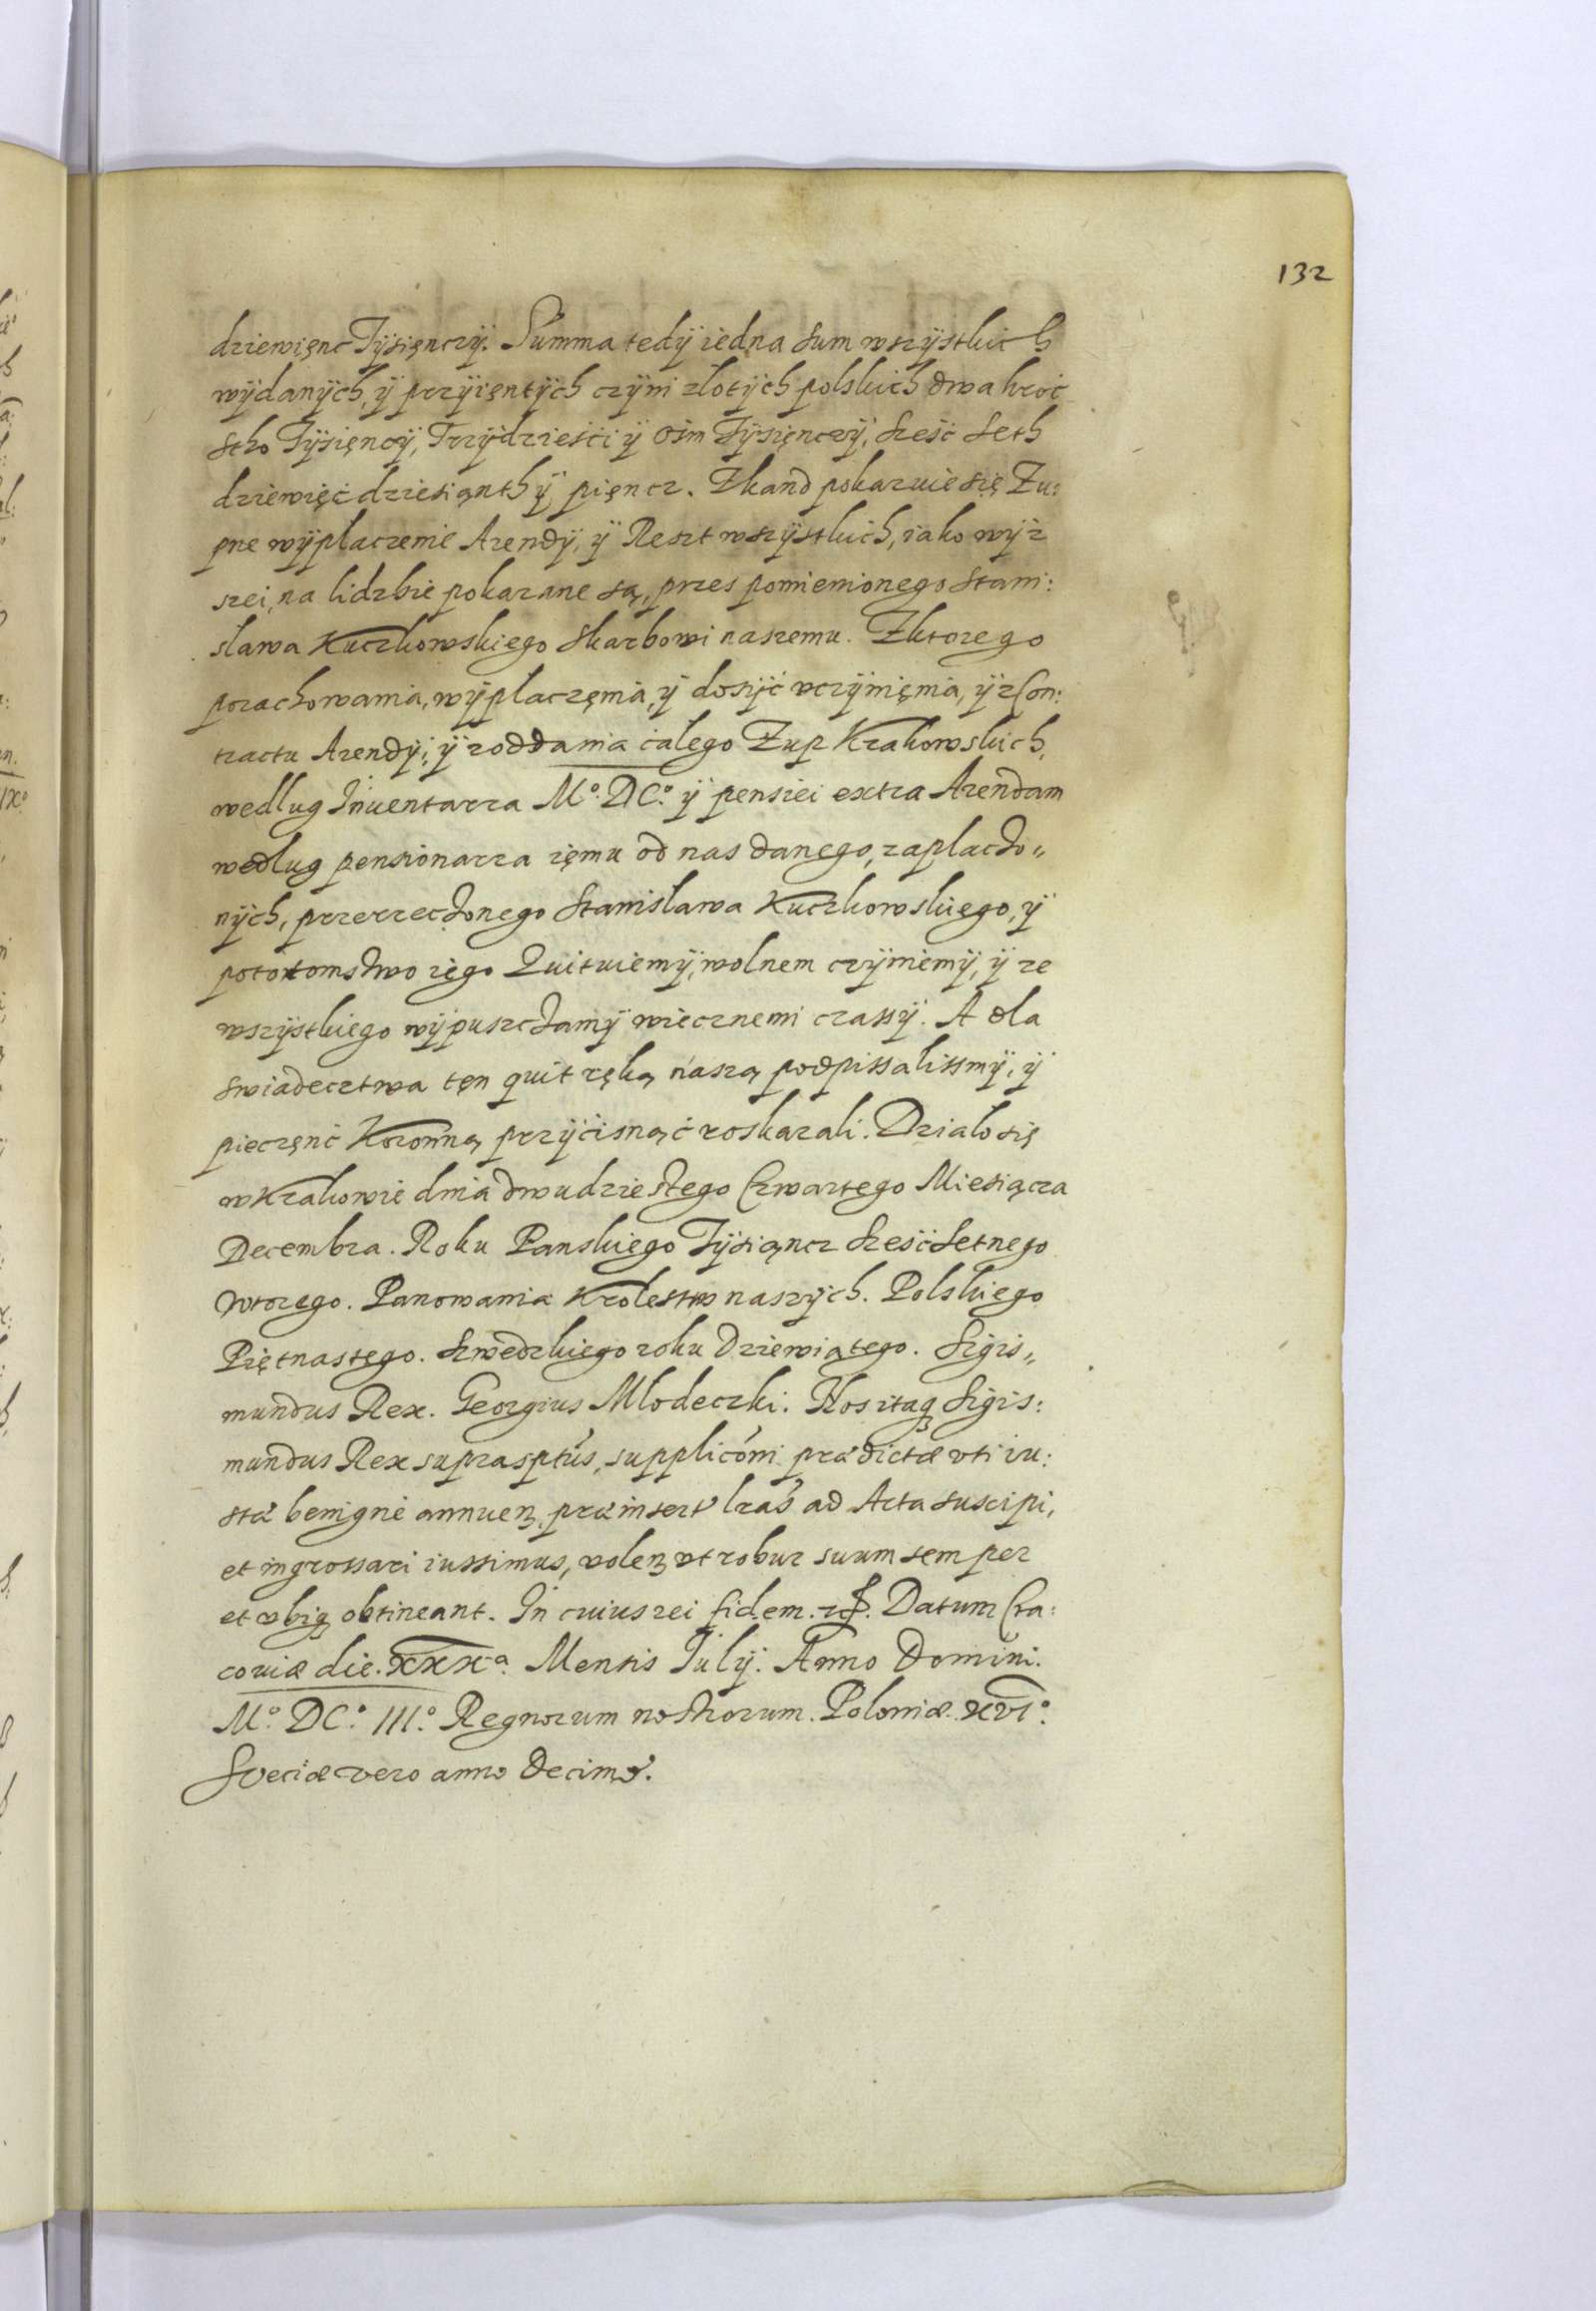 132
dziewięnc Tÿsięnczÿ. Summa tedÿ iedna sum wszÿstkich
wÿdanÿch, ÿ przÿięntÿch czÿni złotÿch polskich dwa kroć
stho Tÿsięnczÿ, Trzÿdzieści ÿ ośm Tÿsięnczÿ, sześć seth
dziewięć dziesiąnth ÿ pięncz. Zkand pokazuie się Zu:
pne wÿplaczenie Arendÿ, ÿ Reszt wszÿstkich, iako wÿż
szei, na lidzbie pokazane są, przes pomienionego Stani:
sława Kuczkowskiego skarbowi naszemu. Zktorego
porachowania, wÿplaczęnia, ÿ dosÿć vczÿnięnia, ÿ z Con:
tractu Arendÿ, ÿ z oddania całego Żup Krakowskich,
wedlug Inuentarza Mº. DCº. ÿ pensiei extra Arendam
wedlug pensionarza ięmu od nas danego, zaplacżo„
nÿch, przerzecżonego Stanisława Kuczkowskięgo, ÿ
pototomstwo ięgo Quituiemÿ, wolnem czÿniemÿ, ÿ ze
wszÿstkiego wÿpuszcżamÿ wiecznemi czassÿ. A dla
swiadecztwa tęn quit ręką naszą podpissalissmÿ, ÿ
pieczęnć Koronną przÿcisnąć roskazali. Działo się
w Krakowie dnia dwudziestego Czwartego Miesiącza
Decembra. Roku Panskięgo Tÿsiąncz sześćsetnego
wtorego. Panowania Krolestw naszÿch. Polskiego
Piętnastęgo. Szwedzkięgo roku Dziewiątego. Sigis„
mundus Rex. Georgius Mlodeczki. Nos itaqꝫ Sigis:
mundus Rex supraspt́us, supplicóni prædictæ vti iu:
stæ benignè annuenꝫ, præinsert́ lrás ad Acta suscipi,
et ingrossari iussimus, volenꝫ vt robur suum semper
et vbiqꝫ obtineant. In cuius rei fidem. Datum Cra:
couiæ die. xxxª. Mensis Iulÿ. Anno Domini.
Mº. DCº. IIIº. Regnorum nostrorum. Poloniæ. xvıº.
Sveciæ vero anno Decimo.